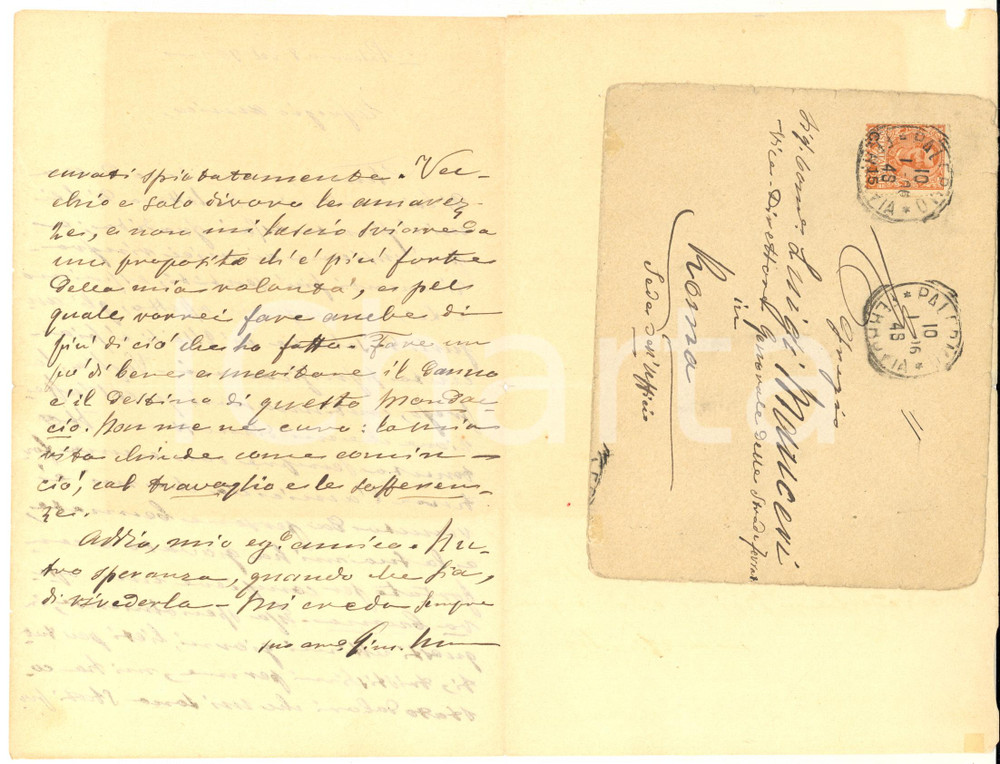 curati spietatamente. Vec-
chio e solo divoro le amarez-
ze, e non mi lascio sviare da
un proposito ch'è più forte
della mia volontà, e pel
quale vorrei fare anche di
più di ciò che ho fatto. Fare un
po' di bene e meritare il danno
è il destino di questo mondac-
cio. Non me ne curo: la mia
vita chiude come comin-
ciò, col travaglio e le sofferen-
ze.
Addio, mio eg.º amico. Nu-
tro speranza, quando che sia,
di rivederla - Mi creda sempre
suo am.º
Egregio
Sig. Comm. Luigi Mancini
Vice Direttore Generale delle Strade ferrate
in
Roma
Sede dell'Uffizio
PALERMO
FERROVIA
10
PALERMO
FERROVIA
10
iCharta